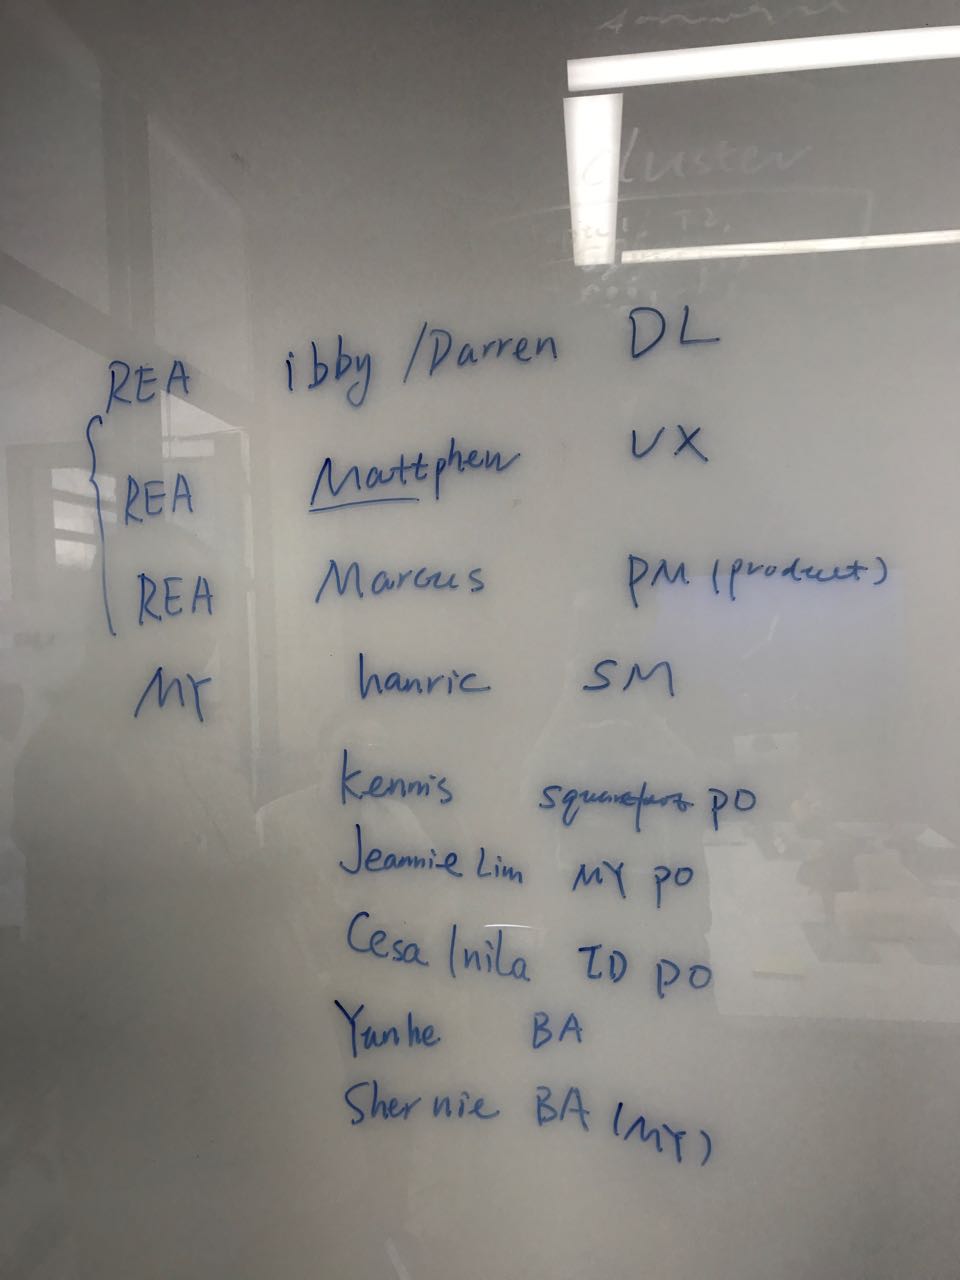 cluster
REA ibby /Darren DL
REA Mattphew UX
REA Marcus PM (product)
MY hanric SM
Kennis squarefoot PO
Jeannie Lim MY PO
Cesa /nila ID PO
Yunhe BA
Shernie BA (MY)